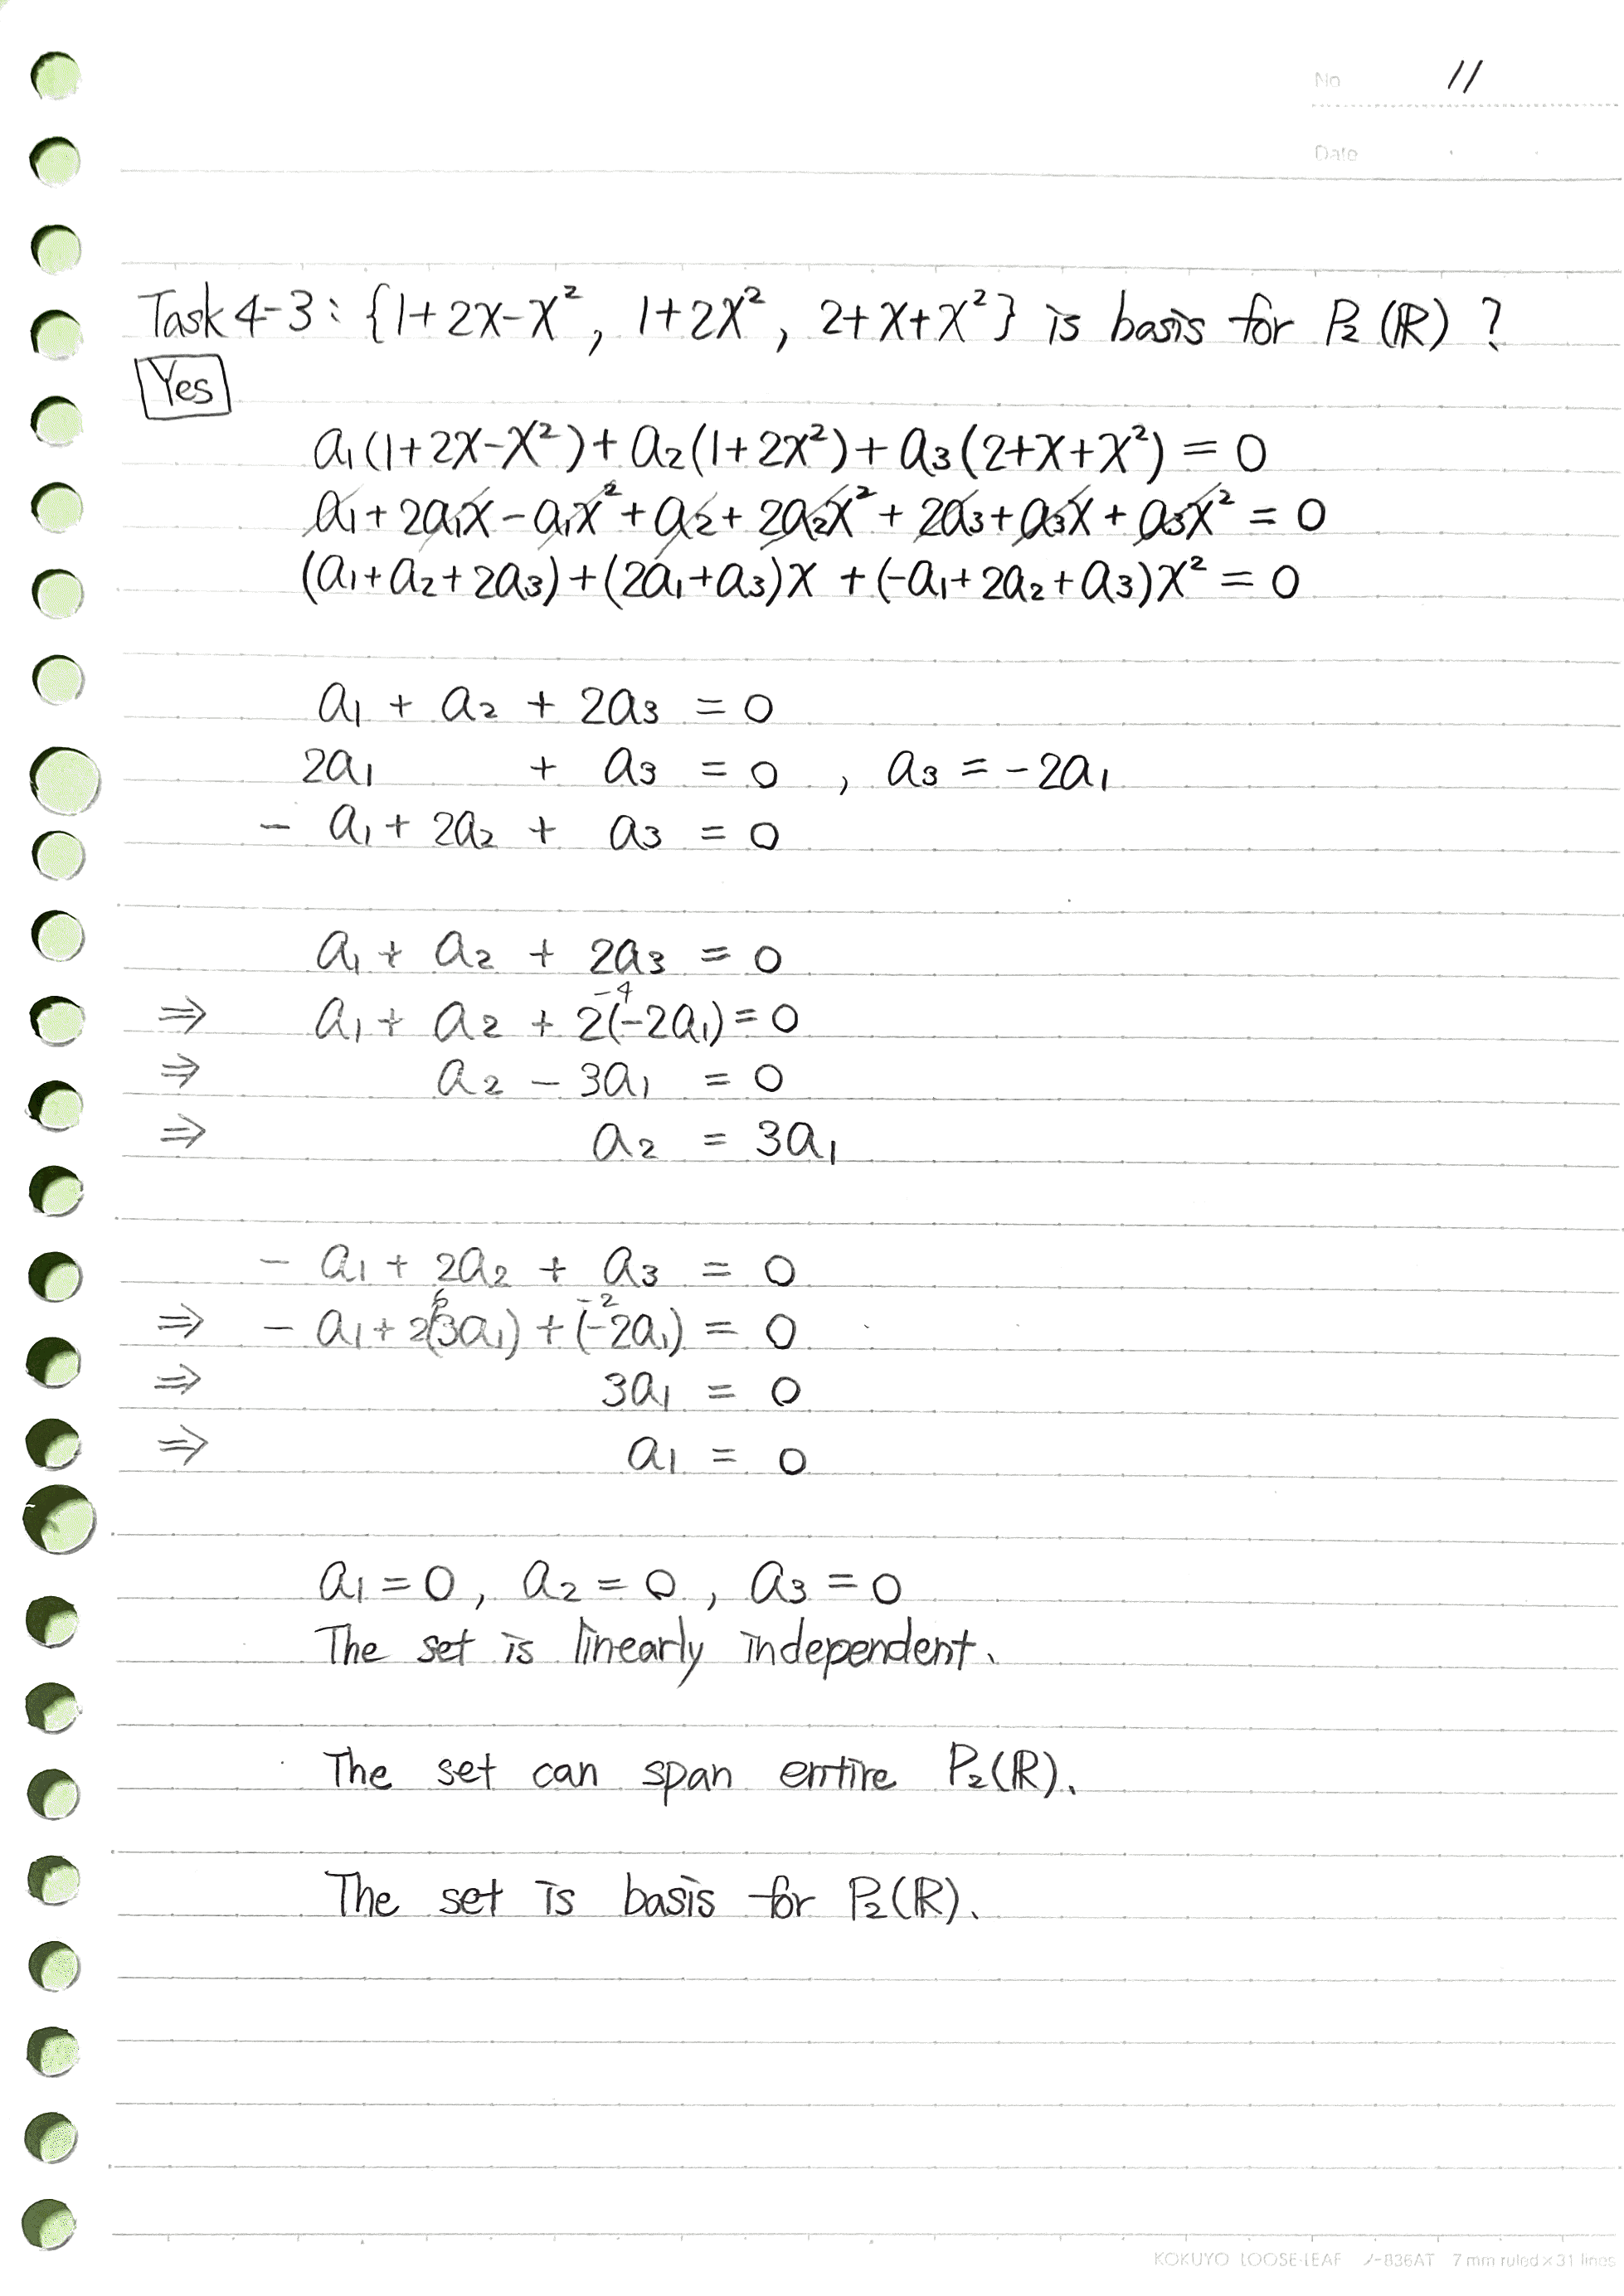 No 11
Date
Task 4-3 : {1+2x-x², 1+2x², 2+x+x²} is basis for P₂(ℝ) ?
Yes
a₁(1+2x-x²)+a₂(1+2x²)+a₃(2+x+x²) = 0
a₁+2a₁x-a₁x²+a₂+2a₂x²+2a₃+a₃x+a₃x² = 0
(a₁+a₂+2a₃)+(2a₁+a₃)x+(-a₁+2a₂+a₃)x² = 0
a₁ + a₂ + 2a₃ = 0
2a₁ + a₃ = 0 , a₃ = -2a₁
- a₁ + 2a₂ + a₃ = 0
a₁ + a₂ + 2a₃ = 0
-4
⇒ a₁ + a₂ + 2(-2a₁) = 0
⇒ a₂ - 3a₁ = 0
⇒ a₂ = 3a₁
- a₁ + 2a₂ + a₃ = 0
6 -2
⇒ - a₁ + 2(3a₁) + (-2a₁) = 0
⇒ 3a₁ = 0
⇒ a₁ = 0
a₁ = 0, a₂ = 0, a₃ = 0
The set is linearly independent.
The set can span entire P₂(ℝ).
The set is basis for P₂(ℝ).
KOKUYO LOOSE-LEAF ノ-836AT 7 mm ruled × 31 lines